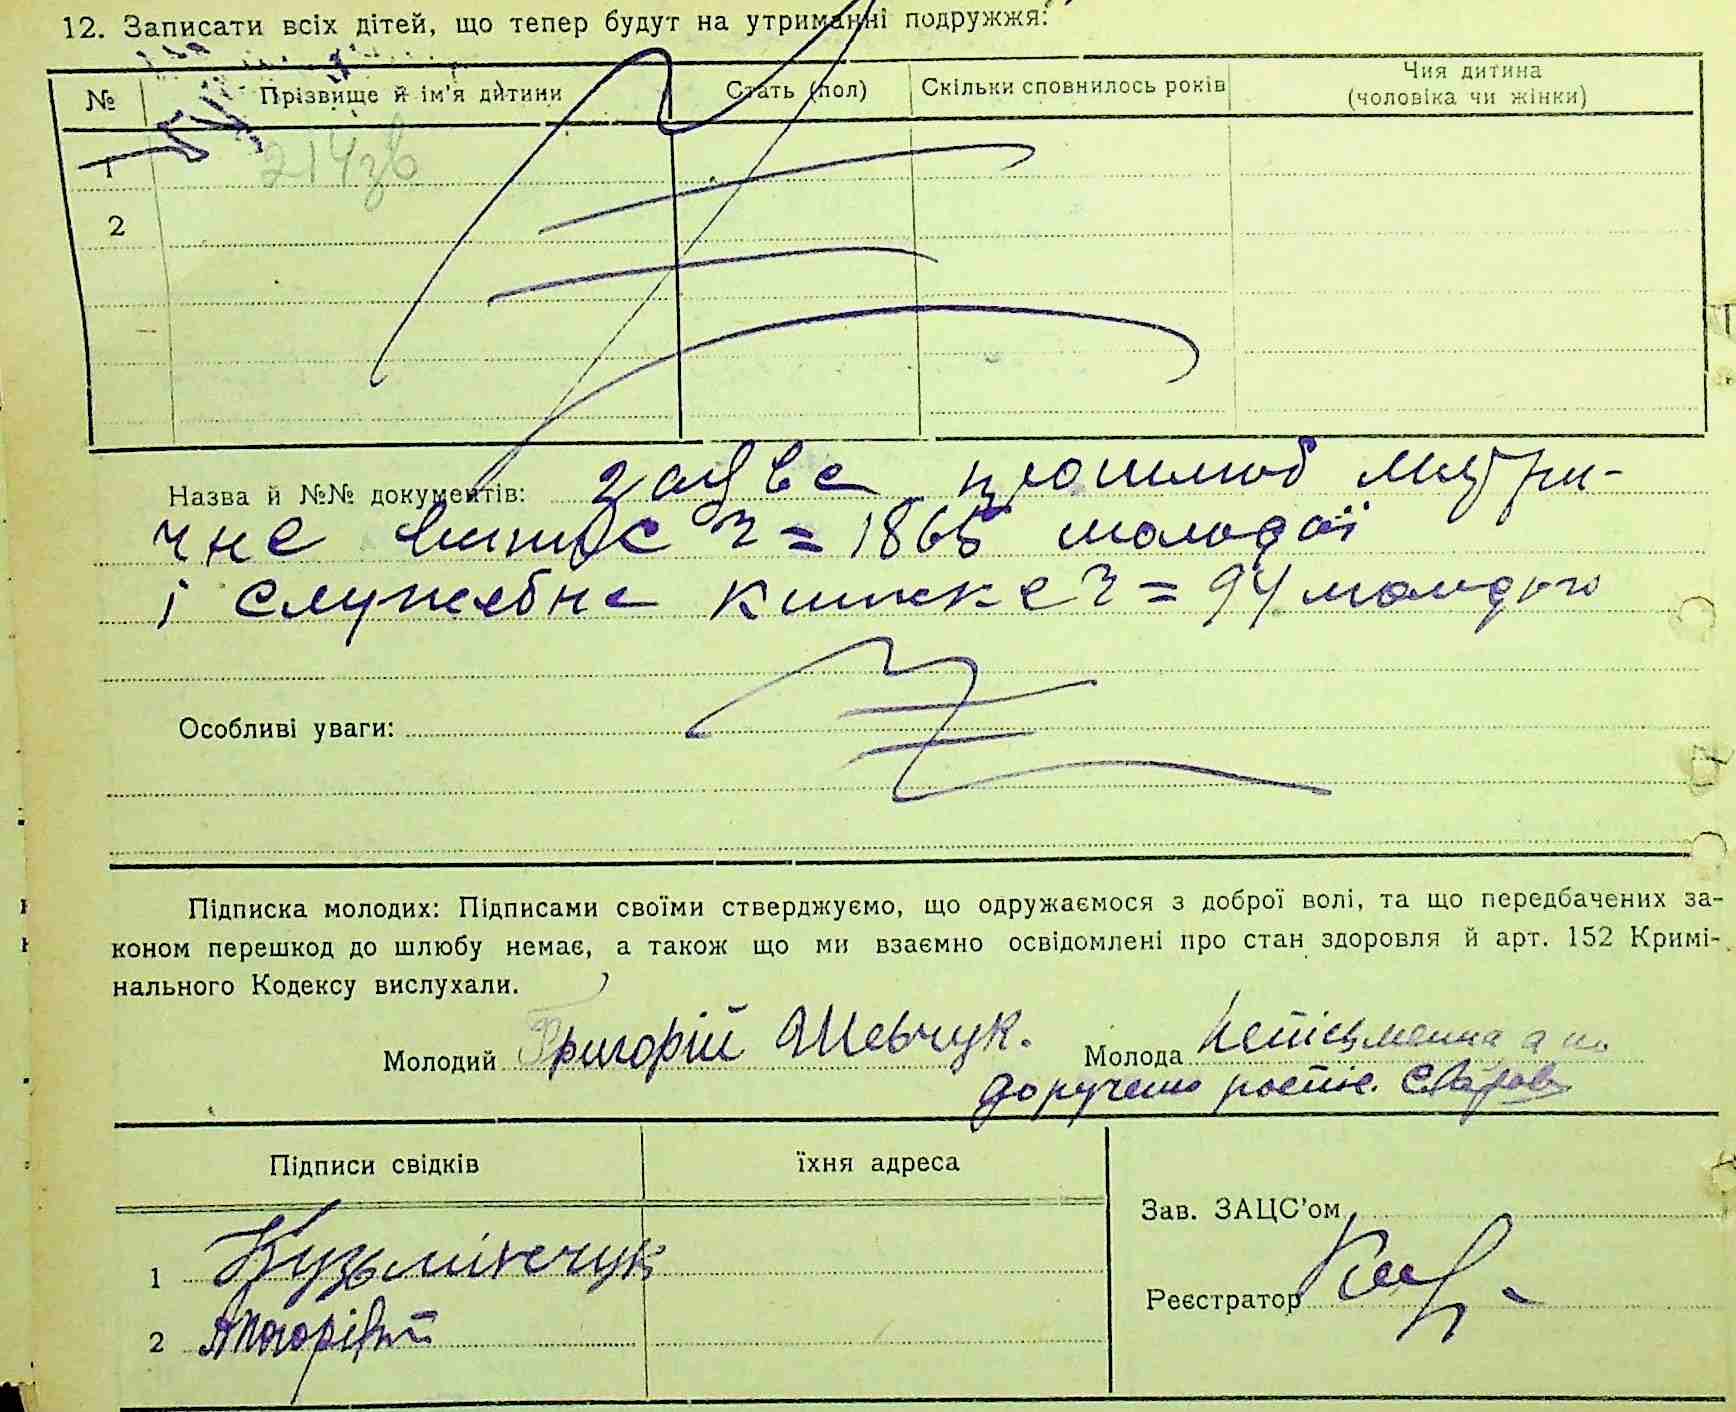 12. Записати всіх дітей, що тепер будут на утриманні подружжя:
№ Прізвище й ім'я дитини Стать (пол) Скільки сповнилось років Чия дитина (чоловіка чи жінки)
1
2
Назва й №№ документів: заява про шлюб метри-
чне випис ч = 1865 молодої
і службна книжка ч = 94 молодого
Особливі уваги:
Підписка молодих: Підписами своїми стверджуємо, що одружаємося з доброї волі, та що передбачених за-
коном перешкод до шлюбу немає, а також що ми взаємно освідомлені про стан здоровля й арт. 152 Кримі-
нального Кодексу вислухали.
Молодий Григорій Шевчук. Молода Неписьменна а по
доручено
Підписи свідків їхня адреса
Зав. ЗАЦС'ом
1 Кузьмінчук
Реєстратор
2